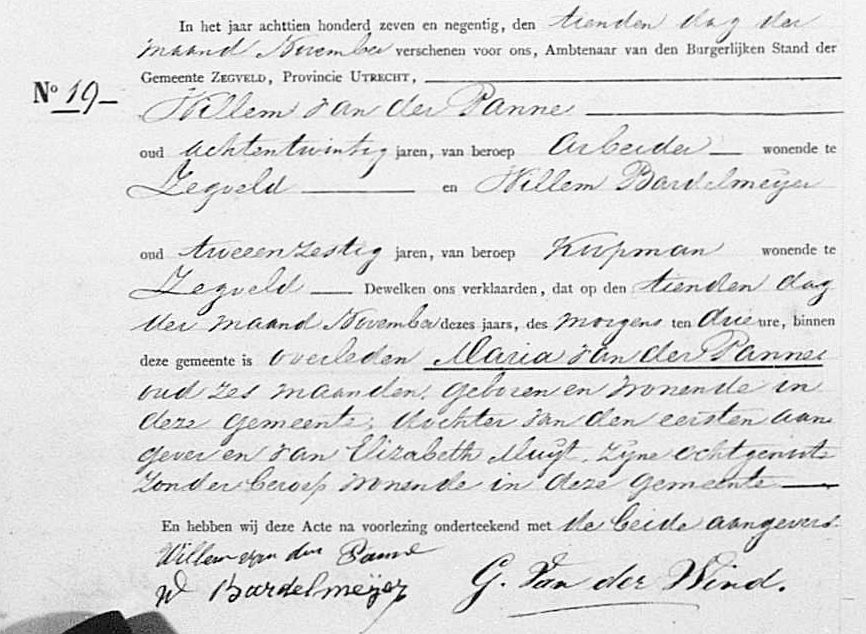 In het jaar achttien honderd zeven en negentig, den tienden dag der
maand November verschenen voor ons, Ambtenaar van den Burgerlijken Stand der
Gemeente ZEGVELD, Provincie UTRECHT,
No 19
Willem van der Panne
oud achtentwintig jaren, van beroep Arbeider wonende te
Zegveld en Willem Bardelmeijer
oud tweeenzestig jaren, van beroep Koopman wonende te
Zegveld Dewelken ons verklaarden, dat op den tienden dag
der maand November dezes jaars, des morgens ten drie ure, binnen
deze gemeente is overleden Maria van der Panne
oud zes maanden, geboren en wonende in
deze gemeente, dochter van den eersten aan
gever en van Elizabeth Muijt, zijne echtgenoote
zonder beroep wonende in deze gemeente
En hebben wij deze Acte na voorlezing onderteekend met de beide aangevers.
Willem van der Panne
W Bardelmeijer G. Van der Wind.